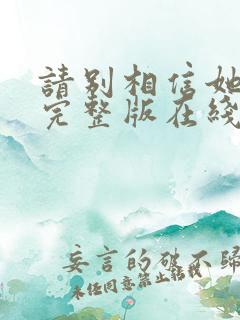 請别相信她
完整版在綫
妄言的破不歸
未任同意禁止転載